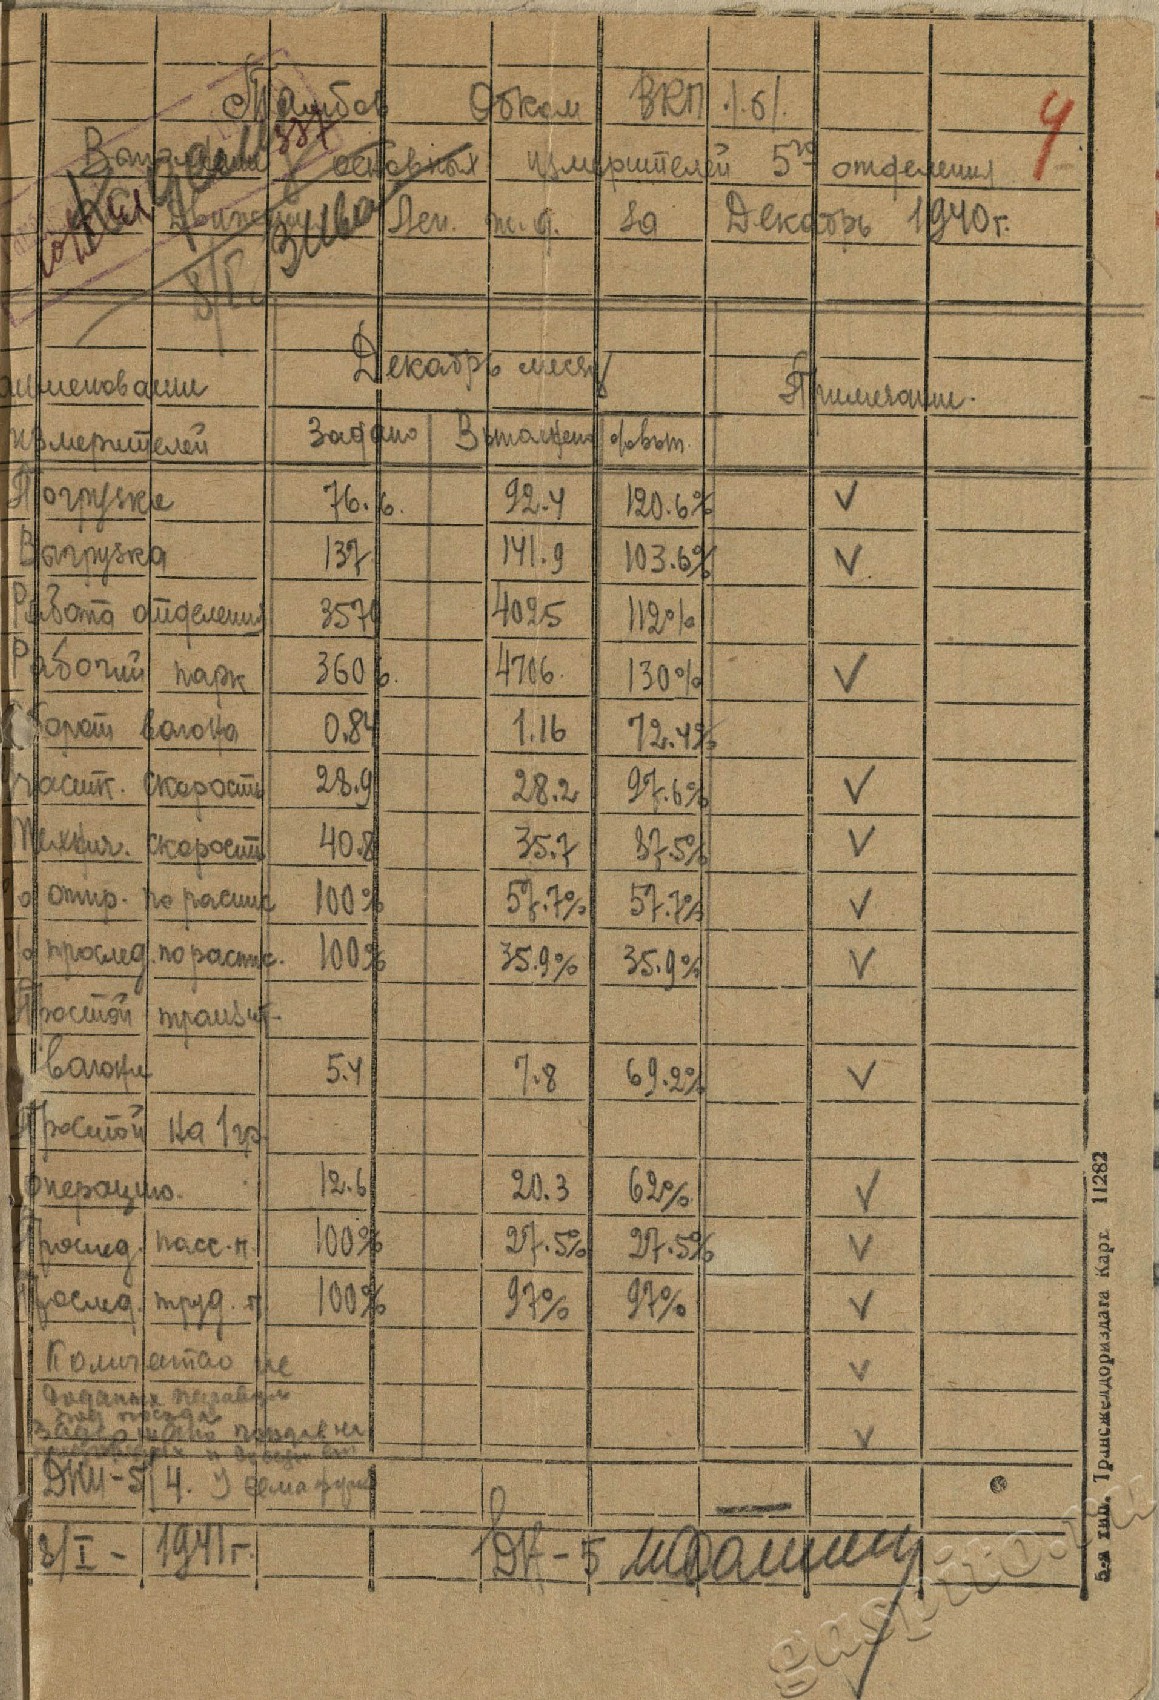 Тамбов Обком ВКП /б/.
4
Выполнение основных измерителей 5го отделения
движения Лен. ж.д. за Декабрь 1940 г.
8/I.
Декабрь месяц
Наименование Примечание.
измерителей Задано Выполнено % вып.
Погрузка 76.6. 92.4 120.6% ✓
Выгрузка 137 141.9 103.6% ✓
Работа отделения 3579 4025 112%
Рабочий парк 3606. 4706. 130% ✓
Оборот вагона 0.84 1.16 72.4%
Участк. скорость 28.9 28.2 97.6% ✓
Технич. скорость 40.8 35.7 87.5% ✓
% отпр. по распис 100% 57.7% 57.7% ✓
% прослед. по распис. 100% 35.9% 35.9% ✓
Простой транзит-
вагона 5.4 7.8 69.2% ✓
Простой на 1 гр.
операцию. 12.6 20.3 62% ✓
Прослед. пасс. п. 100% 27.5% 27.5% ✓
Прослед. труд. п. 100% 97% 97% ✓
Количество не ✓
поезда
Задержано ✓
8/I – 1941 г. ДН-5
5-я тип. Трансжелдориздата Карт 11282
gaspito.ru